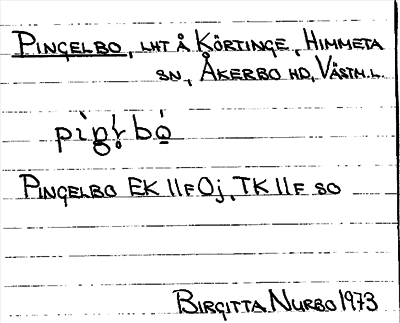 PINGELBO, LHT Å KÖRTINGE, HIMMETA
SN, ÅKERBO HD, VÄSTM.L.
PINGELBO EK 11F 0j, TK 11F SO
BIRGITTA NURBO 1973